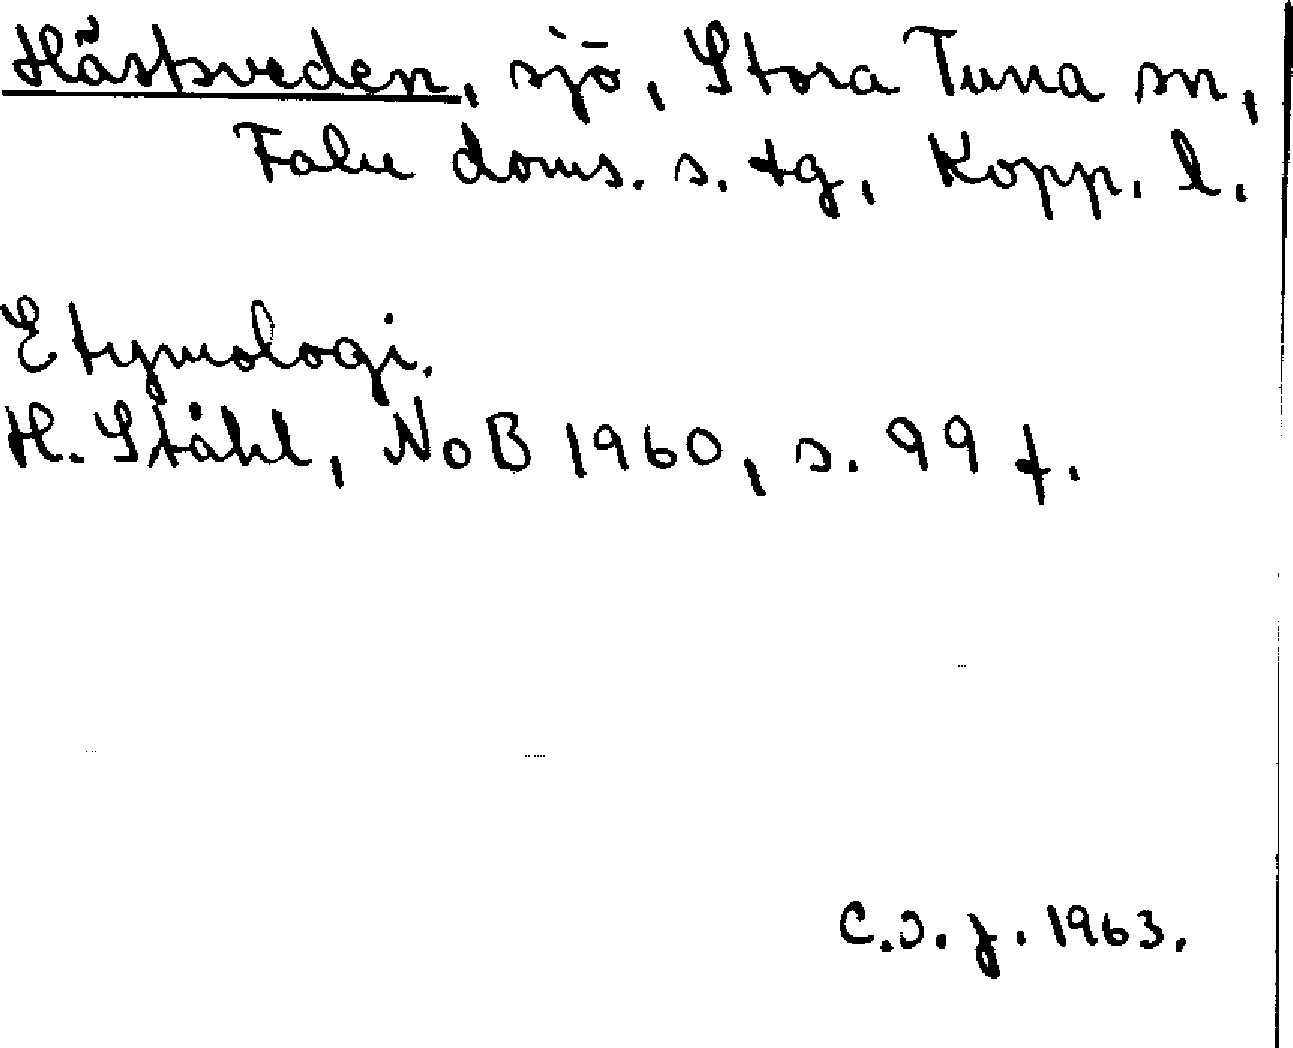 Hästsveden, sjö, Stora Tuna sn,
Falu doms. s. tg, Kopp. l.
Etymologi.
H. Ståhl, NoB 1960, s. 99 f.
C.O.J. 1963.